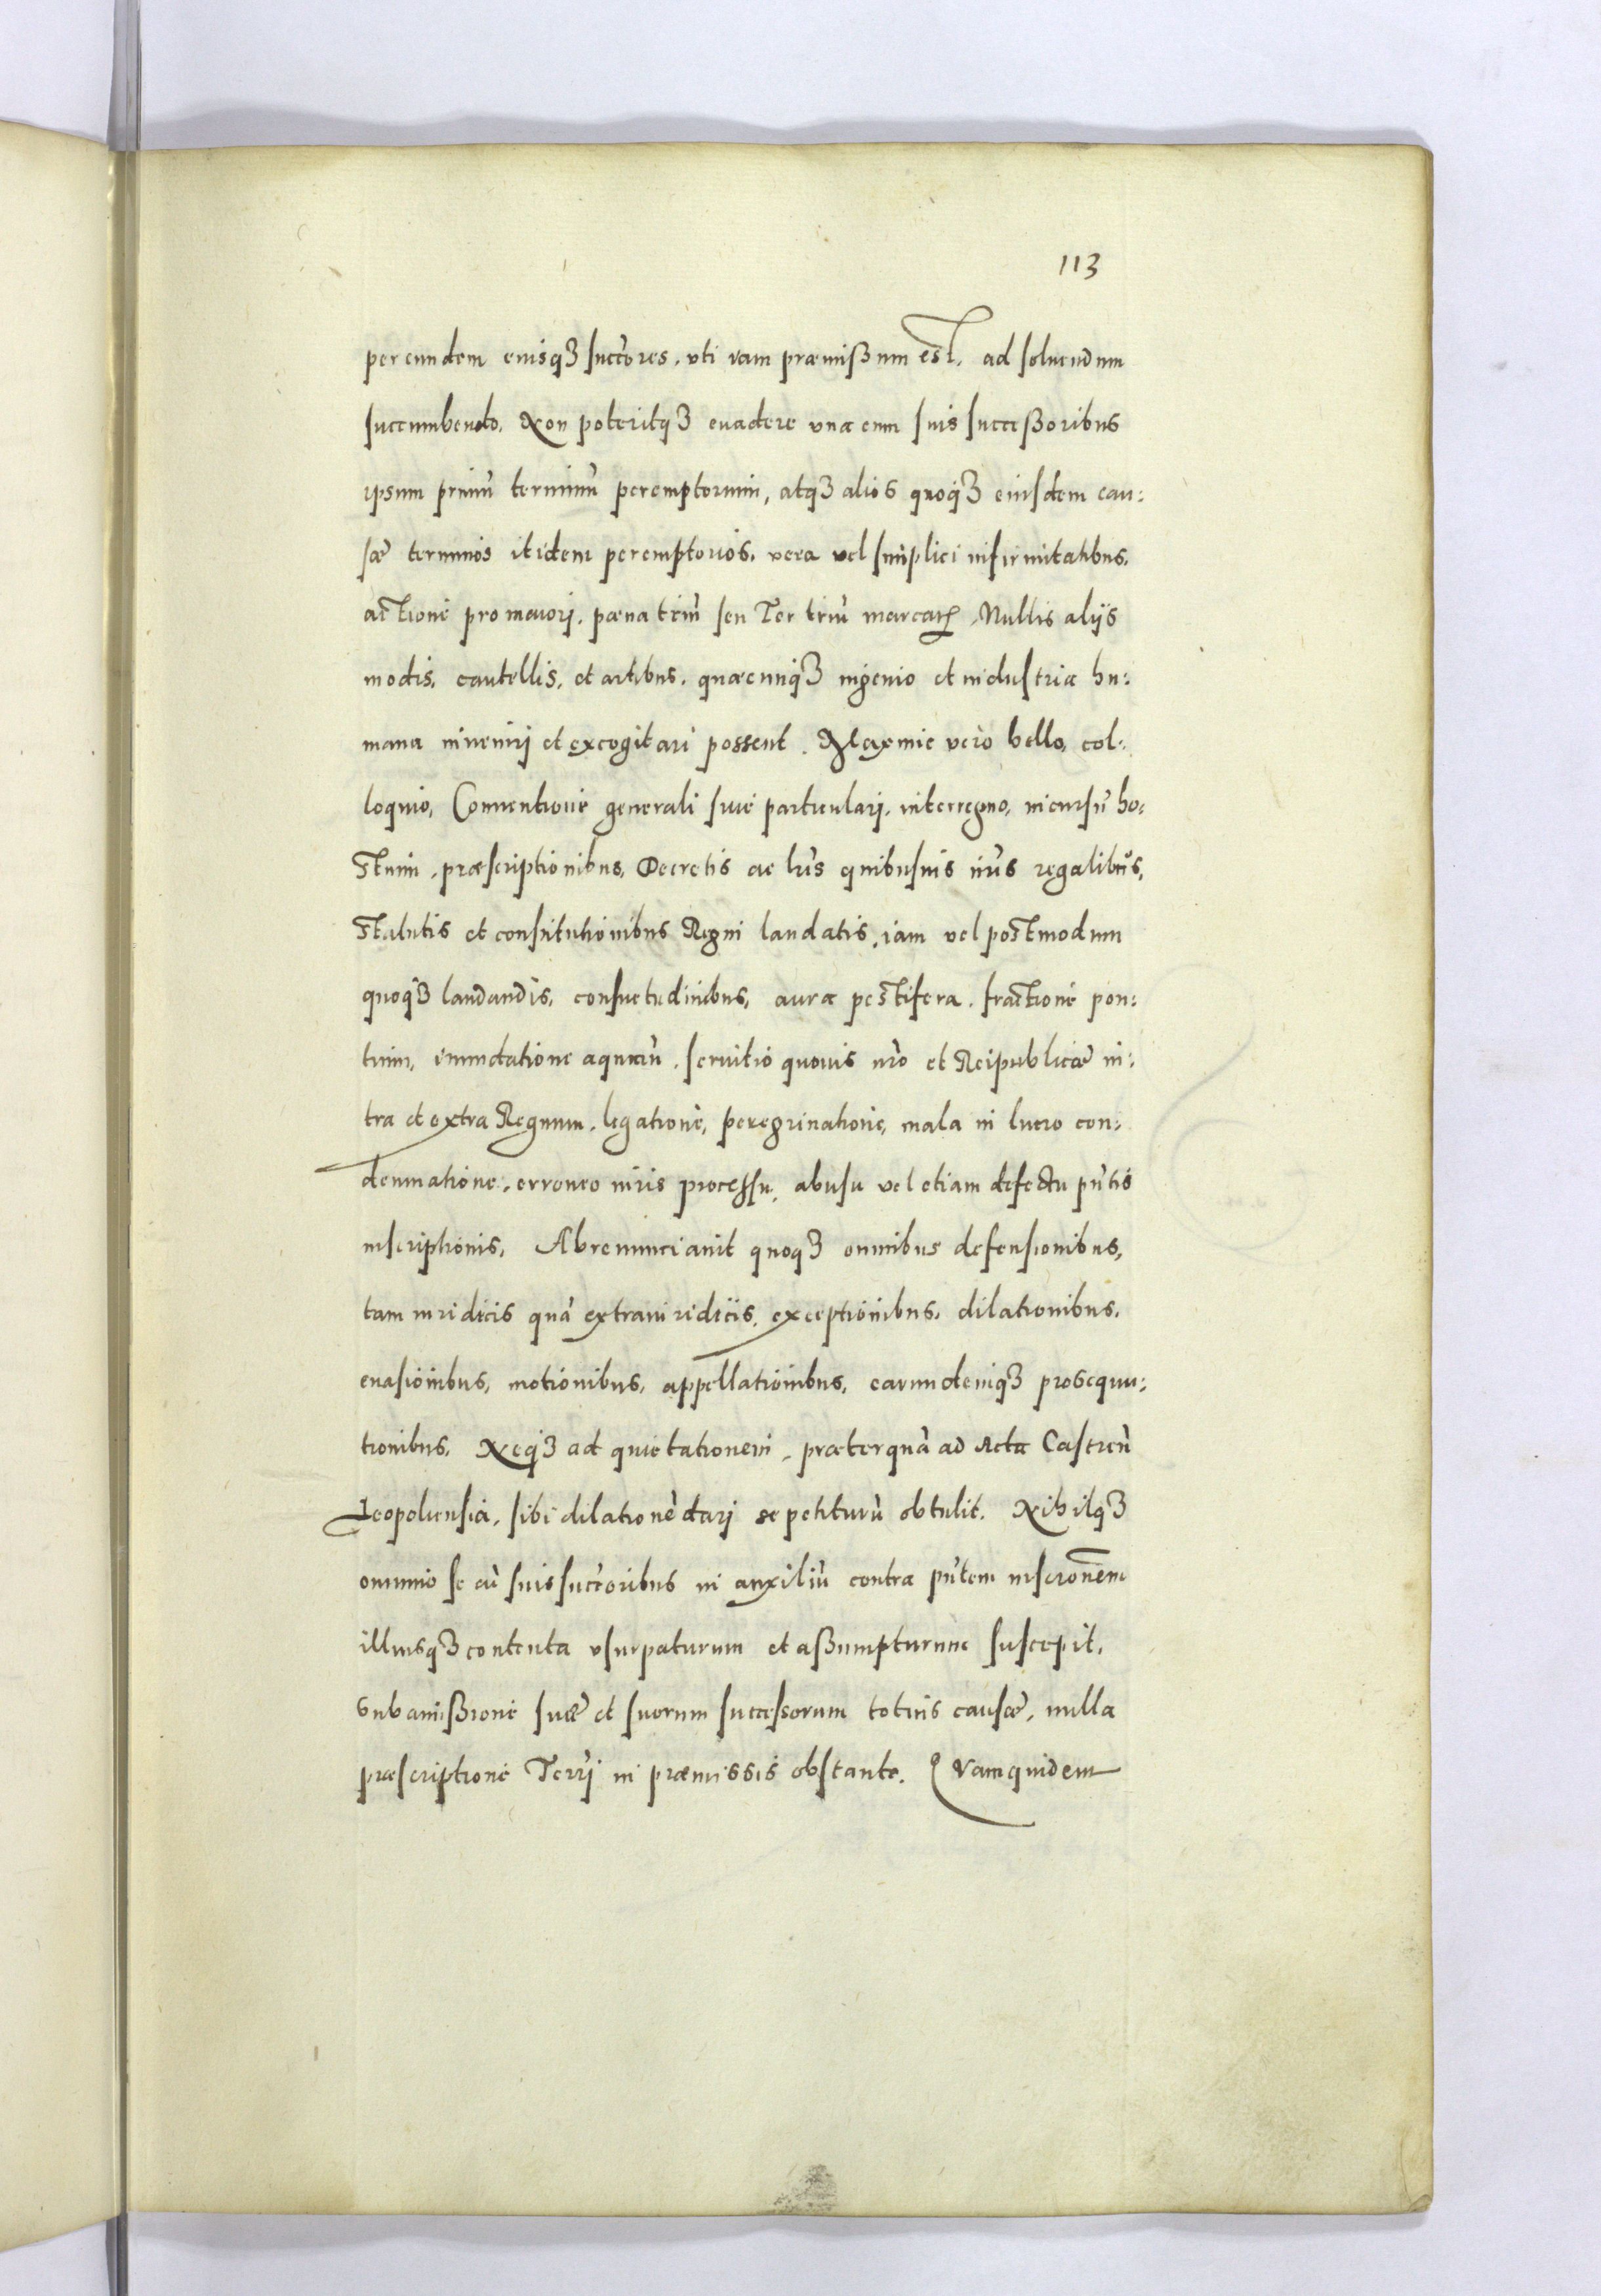 113
per eundem eiusq3 succ̃ores, vti iam præmißum est. ad soluendum
succumbendo. Non poteritq3 euadere vna cum suis succeßoribus
ipsum primũ terminũ peremptorium, atq3 alios quoq3 eiusdem cau:
sæ terminos itidem peremptorios, vera vel simplici infirmitatibus,
actione pro maiori, pæna triũ seu Ter triũ marcarꝝ, Nullis alijs
modis, cautellis, et artibus, quæcunq3 ingenio et industria hu:
mana inueniri et excogitari possent. Maxime verò bello, col:
loquio, Conuentione generali siue particulari, interregno, incursũ ho:
stium, præscriptionibus, Decretis ac lr̃is quibusuis nr̃is regalibus,
statutis et constitutionibus Regni laudatis, iam vel postmodum
quoq3 laudandis, consuetudinibus, aura pestifera, fractione pon:
tium, inundatione aquarũ, seruitio quouis nr̃o et Reipublicæ in:
tra et extra Regnum, legatione, peregrinatione, mala in lucro con:
demnatione, erroneo iuris processu, abusu vel etiam defectu pñtis
inscriptionis. Abrenunciauit quoq3 omnibus defensionibus,
tam iuridicis quã extraiuridicis, exceptionibus, dilationibus,
euasionibus, motionibus, appellationibus, earundemq3 prosequu:
tionibus. Neq3 ad quietationem, præterquã ad Acta Castreñ
Leopoliensia, sibi dilationẽ dari se petiturũ obtulit. Nihilq3
omnino se cũ suis succ̃oribus in auxiliũ contra pñtem inscr̃onem
illiusq3 contenta vsurpaturum et aßumpturum suscepit,
sub amißione suæ et suorum successorum totius causæ, nulla
præscriptione Terr̃i in præmissis obstante. Quamquidem